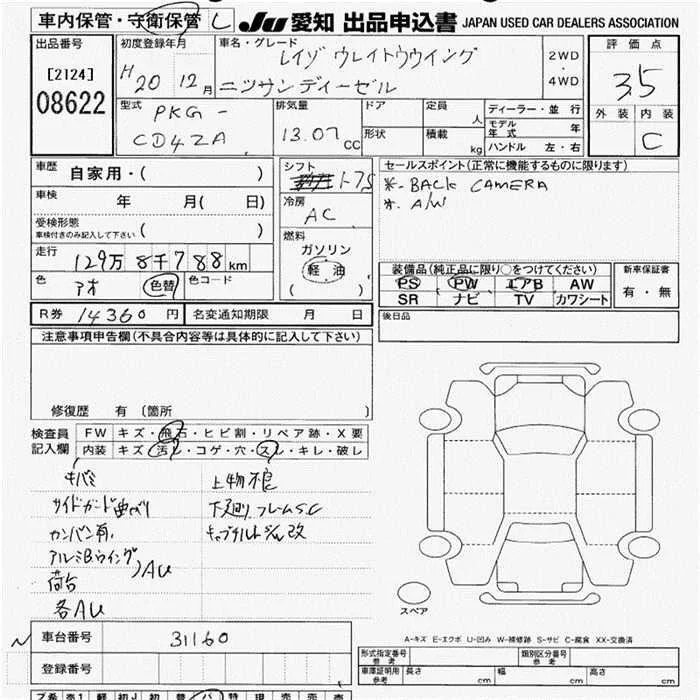 車内保管・守衛保管 し JU 愛知 出品申込書 JAPAN USED CAR DEALERS ASSOCIATION
出品番号
[2124]
08622
初度登録年月
H 20 12月
車名・グレード
レイゾ ウレイトウウイング
ニツサンディーゼル
2WD
・
4WD
評価点
3.5
外装 内装
C
型式
PKG-
CD4ZA
排気量
13.07 CC
ドア
形状
定員 人
積載 kg
ディーラー・並行
モデル年式 年
ハンドル 左・右
車歴 自家用・( )
車検 年 月( 日)
受検形態
車検付きのみ記入して下さい ( )
走行 129万8千788km
色 アオ 色替 色コード
シフト
ト7S
冷房
AC
燃料
ガソリン
軽油
( )
セールスポイント(正常に機能するものに限ります)
※. BACK CAMERA
※. A/W
装備品(純正品に限り○をつけてください)
PS PW エアB AW
SR ナビ TV カワシート
新車保証書
有・無
R券 14360円 名変通知期限 月 日
後日品
注意事項申告欄(不具合内容等は具体的に記入して下さい)
修復歴 有 〔箇所 〕
検査員記入欄
FW キズ・飛石・ヒビ割・リペア跡・X要
内装 キズ・汚レ・コゲ・穴・スレ・キレ・破レ
キバミ 上物不良
サイドガード曲がり 下廻り、フレームS.C
カンバン有、
アルミBウイング
荷台 )AU
各AU
スペア
A-キズ E-エクボ U-凹み W-補修跡 S-サビ C-腐食 XX-交換済
車台番号 31160
登録番号
形式指定番号 参考
類別区分番号 参考
車庫証明用 参考 長さ cm 幅 cm 高さ cm